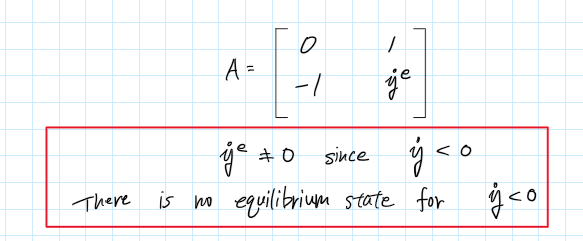 A = [ 0 1
-1 ẏᵉ ]
ẏᵉ ≠ 0 since ẏ < 0
There is no equilibrium state for ẏ < 0